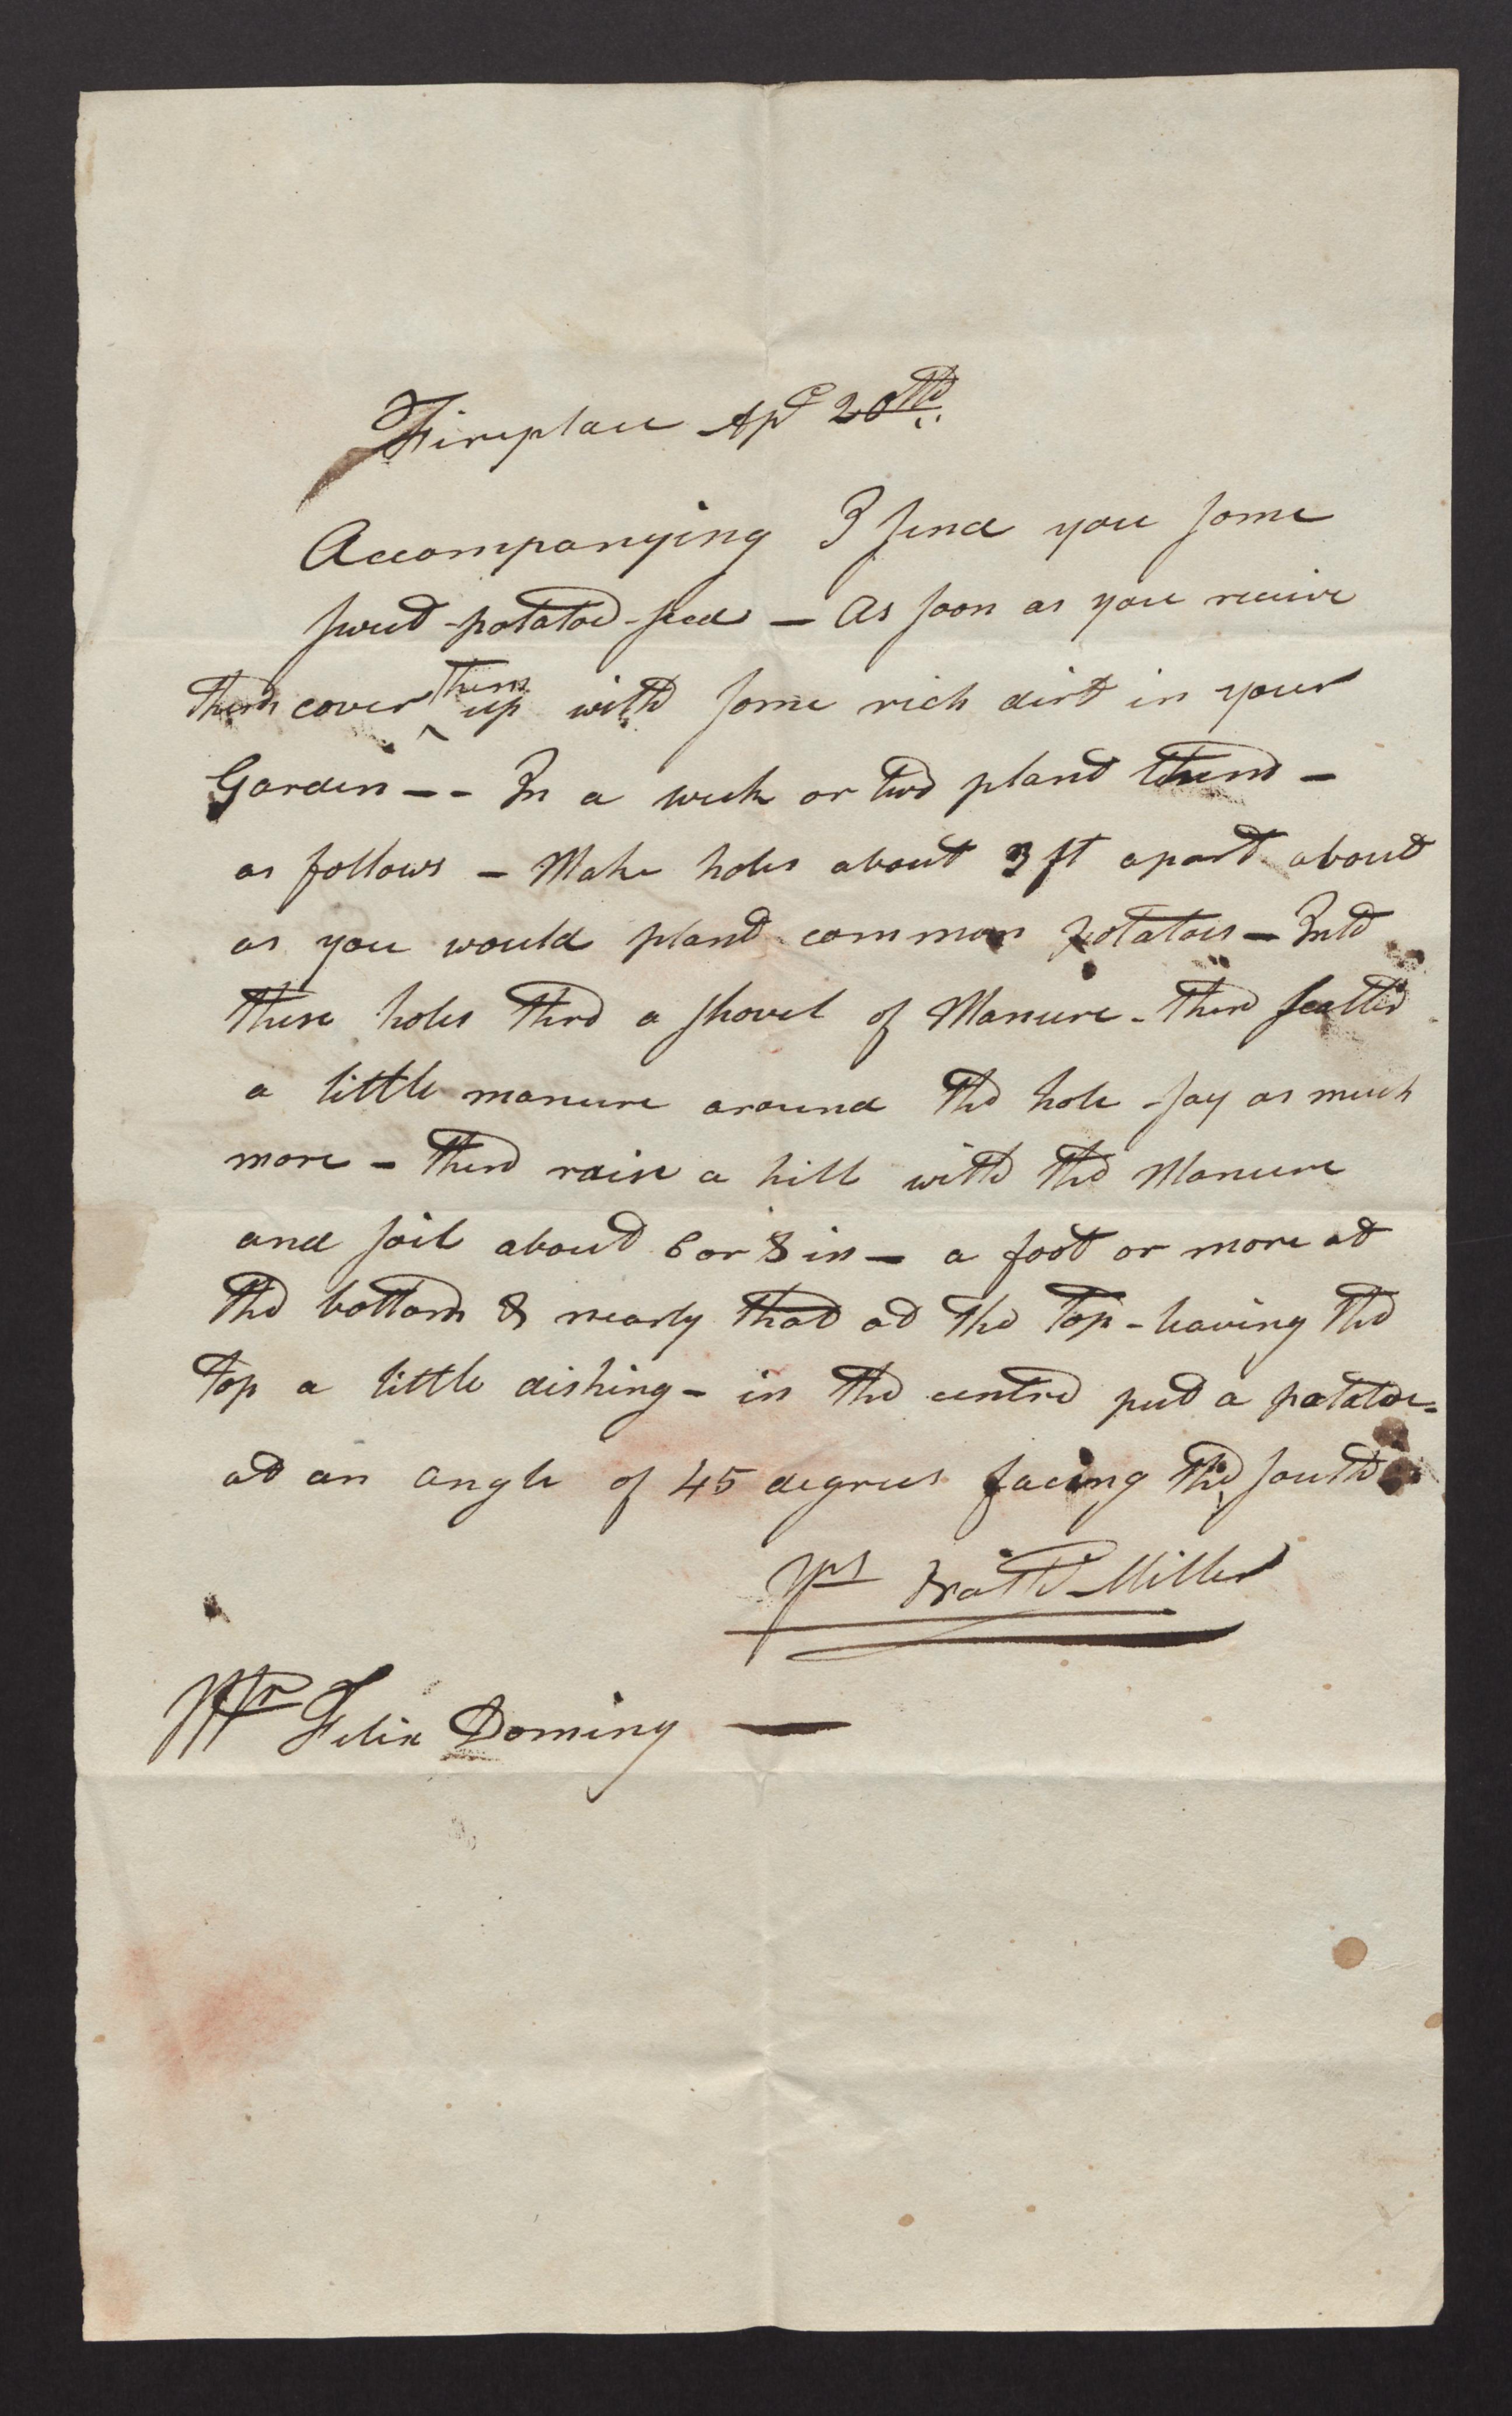 Fireplace Apl 20th
Accompanying I send you some
sweet-potatoe-seed — As soon as you receive
them cover them up with some rich dirt in your
Garden -- In a week or two plant them —
as follows — Make holes about 3 ft apart about
as you would plant common potatoes — Into
these holes thro a shovel of Manure - then scatter
a little manure around the hole - say as much
more — then raise a hill with the Manure
and soil about 6 or 8 in — a foot or more at
the bottom & nearly that at the top - leaving the
top a little dishing - in the centre put a potatoe -
at an angle of 45 degrees facing the south
Yrs Miller
Mr Felix Doming —